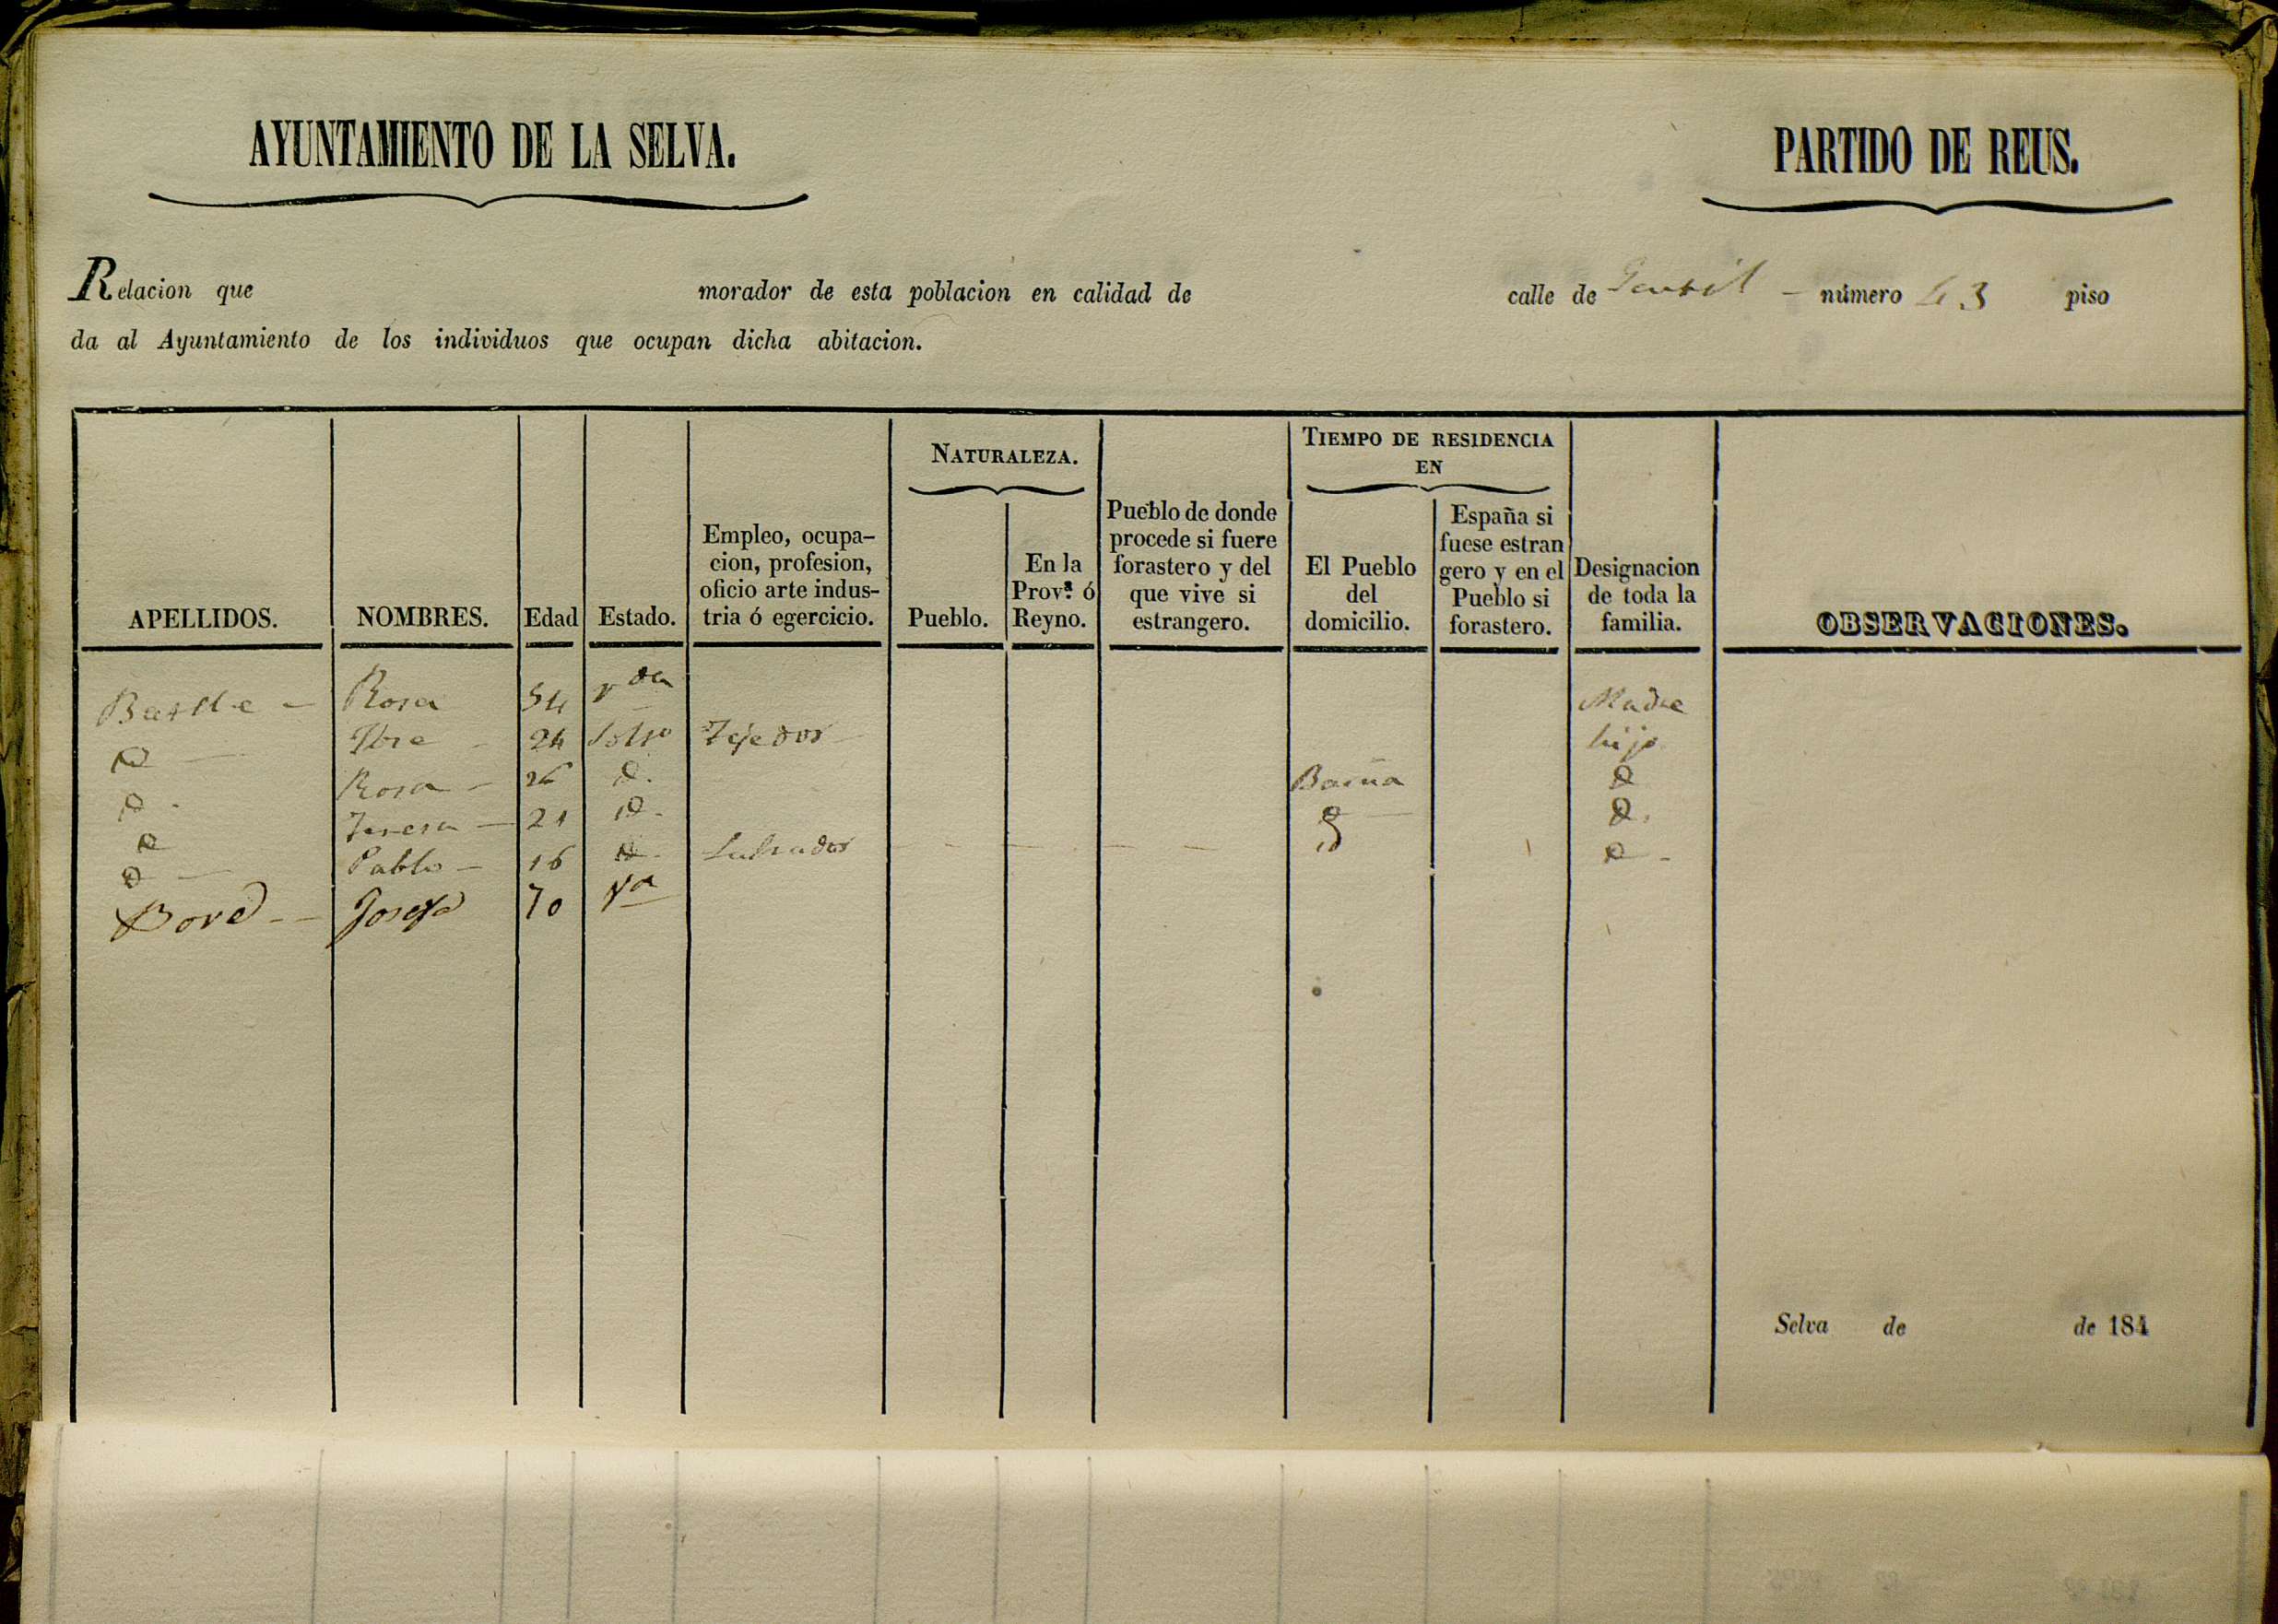 AYUNTAMIENTO DE LA SELVA. PARTIDO DE REUS.
Relacion que morador de esta poblacion en calidad de calle de número 43 piso
da al Ayuntamiento de los individuos que ocupan dicha abitacion.
APELLIDOS.
NOMBRES.
Edad
Estado.
Empleo, ocupa-
cion, profesion,
oficio arte indus-
tria ó egercicio.
NATURALEZA.
Pueblo.
En la
Prov.ª ó
Reyno.
Pueblo de donde
procede si fuere
forastero y del
que vive si
estrangero.
TIEMPO DE RESIDENCIA
EN
El Pueblo
del
domicilio.
España si
fuese estran
gero y en el
Pueblo si
forastero.
Designacion
de toda la
familia.
OBSERVACIONES.
Rosa 54 Vda Madre
24 Soltro Tejedor hijo
Rosa 26 Barña
Teresa 21 id.
Pablo 16 Labrador
Bové Josefa 70 Va
Selva de de 184